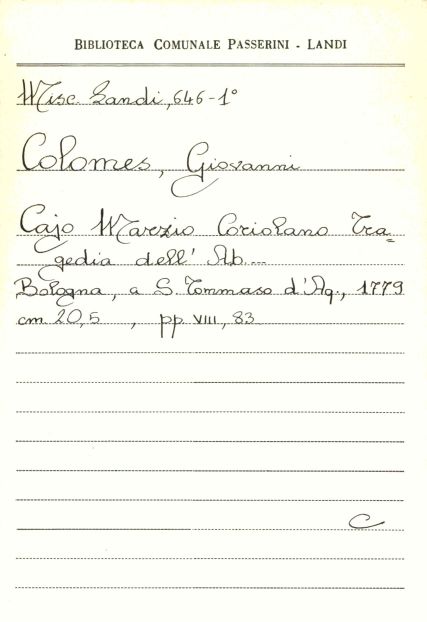 BIBLIOTECA COMUNALE PASSERINI - LANDI
Misc. Landi, 646-1°
Colomes, Giovanni
Cajo Marzio Coriolano Tra=
gedia dell' Ab....
Bologna, a S. Tommaso d'Aq., 1779
cm. 20,5 , pp. VIII, 83
C